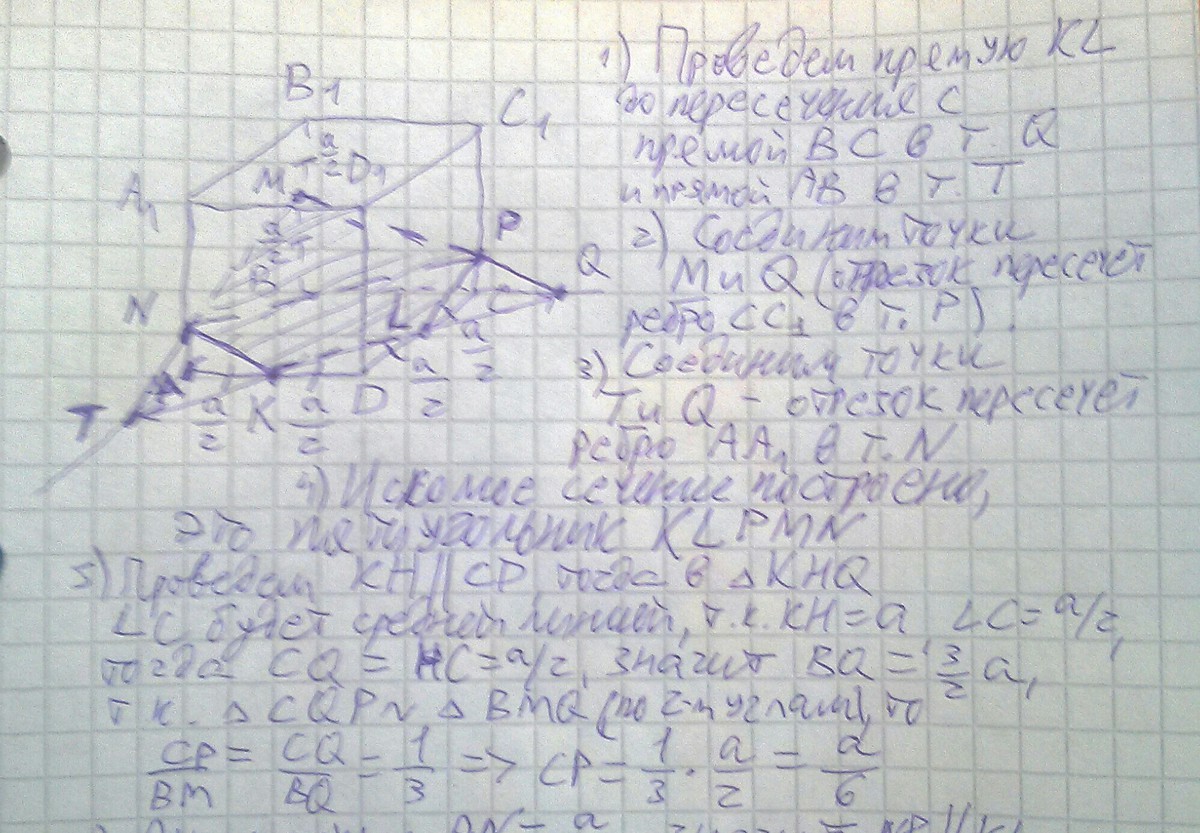 1) Проведем прямую KL
до пересечения с
прямой BC в т. Q
и прямой AB в т. T
2) Соединим точки
M и Q (отрезок пересечет
ребро CC1 в т. P).
3) Соединим точки
T и Q - отрезок пересечет
ребро AA1 в т. N
4) Искомое сечение построено,
это пятиугольник KLPMN
5) Проведем KH||CD тогда в △KHQ
LC будет средней линией, т.к. KH=a LC=a/2,
тогда CQ = HC=a/2, значит BQ = 3/2 a,
т.к. △CQP ~ △BMQ (по 2-м углам), то
CP/BM = CQ/BQ = 1/3 => CP = 1/3 · a/2 = a/6
B1
C1
a/2
M
D1
A1
P
a/2
B
Q
N
L
C
a/2
A
T
a/2
K
a/2
D
a/2